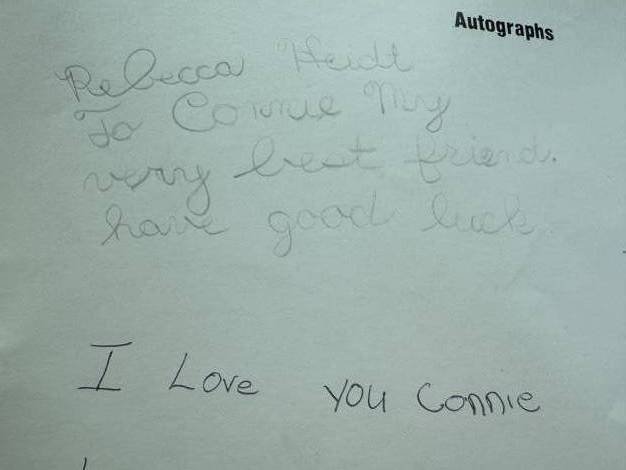 Autographs
Rebecca Heidt
To Connie My
very best friend.
have good luck
I Love you Connie